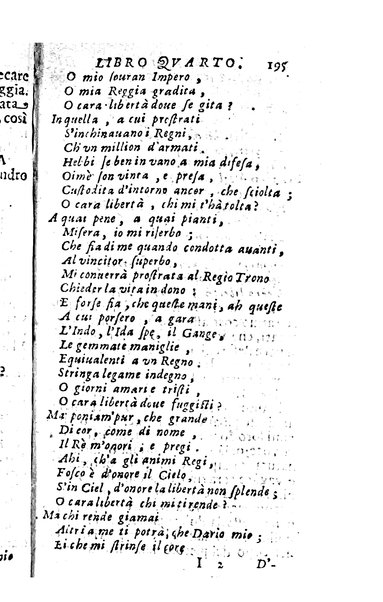 LIBRO QVARTO. 195
ecare
ggia.
ata
, così
A
ndro
?
nio
O mio souran Impero,
O mia Reggia gradita,
O cara libertà doue se gita?
In quella, a cui prestrati
S'inchinauano i Regni,
Ch'vn million d'armati.
Hebbi se ben in vano a mia difesa,
Oimè son vinta, e presa,
Custodita d'intorno ancor, che sciolta;
O cara libertà, chi mi t'hà tolta?
A quai pene, a quai pianti,
Misera, io mi riserbo;
Che fia di me quando condotta auanti,
Al vincitor superbo,
Mi conuerrà prostrata al Regio Trono
Chieder la vita in dono;
E forse fia, che queste mani, ah queste
A cui porsero, a gara
L'Indo, l'Idaspe, il Gange,
Le gemmate maniglie,
Equiualenti a vn Regno.
Stringa legame indegno,
O giorni amari e tristi,
O cara libertà doue fuggisti?
Ma poniam'pur, che grande
Di cor, come di nome,
Il Rè m'onori; e pregi.
Ahi, ch'a gli animi Regi,
Fosco è d'onore il Cielo,
S'in Ciel, d'onore la libertà non splende;
O cara libertà chi mi ti rende?
Ma chi rende giamai
Altri a me ti potrà; che Dario mio;
Ei che mi strinse il core
I 2 D'-